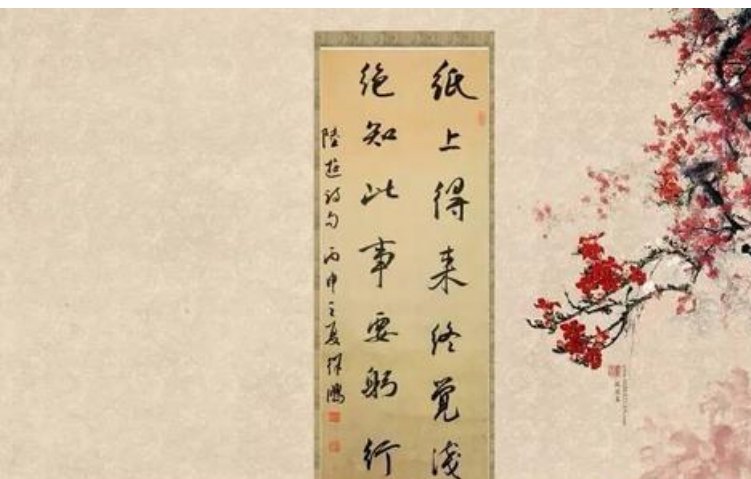 纸上得来终觉浅
绝知此事要躬行
陆游诗句 丙申之夏